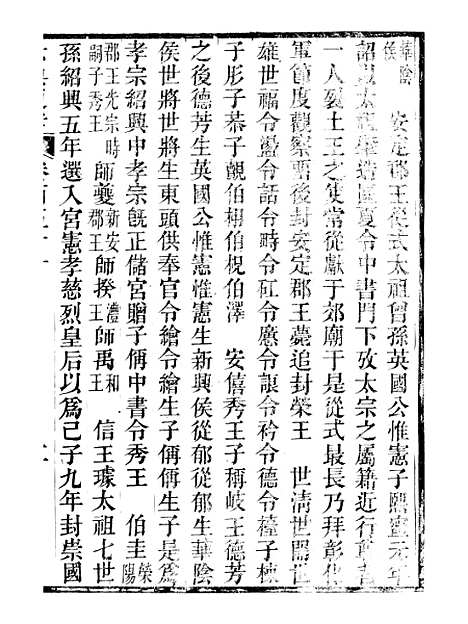 華陰侯　安定郡王從式太祖曾孫英國公惟憲子熙寧元年
詔太祖造區夏令中書門下攷太宗之屬籍近行尊者
一人裂土王之使常從獻于郊廟于是從式最長乃拜彰化
軍節度觀察留後封安定郡王薨追封榮王　世清世開世
雄世福令懬令話令畤令矼令應令詪令衿令德令薹子棟
子肜子恭子覿伯栩伯柷伯澤　安僖秀王子稱岐王德芳
之後德芳生英國公惟憲惟憲生新興侯從郁從郁生華陰
侯世將世將生東頭供奉官令繪令繪生子偁偁生子是爲
孝宗紹興中孝宗旣正儲宮贈子偁中書令秀王　伯圭榮陽
郡王光宗時嗣子秀王師夔新安郡王師揆澧王師禹和王　信王璩太祖七世
孫紹興五年選入宮憲孝慈烈皇后以爲己子九年封崇國